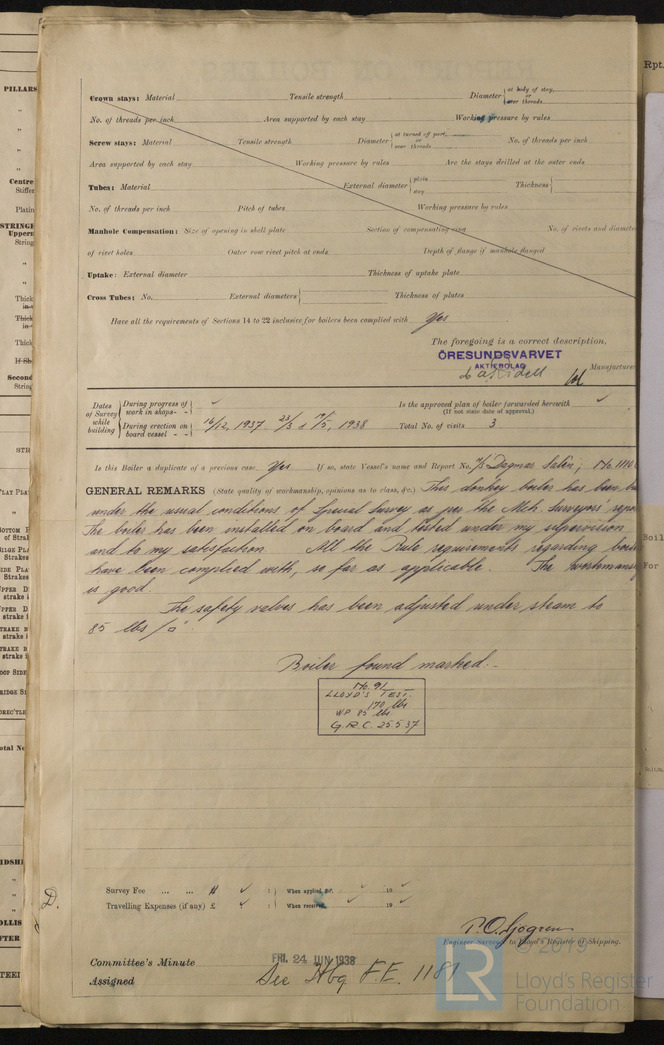 PILLARS
Rpt.
Crown stays: Material
Tensile strength
Diameter at body of stay, or over threads
No. of threads per inch
Area supported by each stay
Working pressure by rules
Screw stays: Material
Tensile strength
Diameter at turned off part, or over threads
No. of threads per inch
Area supported by each stay
Working pressure by rules
Are the stays drilled at the outer ends
Tubes: Material
External diameter plain stay
Thickness
No. of threads per inch
Pitch of tubes
Working pressure by rules
Manhole Compensation: Size of opening in shell plate
Section of compensating ring
No. of rivets and diamete
of rivet holes
Outer row rivet pitch at ends
Depth of flange if manhole flanged
Uptake: External diameter
Thickness of uptake plate
Cross Tubes: No.
External diameters
Thickness of plates
Have all the requirements of Sections 14 to 22 inclusive for boilers been complied with Yes
The foregoing is a correct description,
ÖRESUNDSVARVET
AKTIEBOLAG
Manufacturer
Dates of Survey while building
During progress of work in shops - -
During erection on board vessel - -
16/12, 1937 23/3 & 19/5, 1938
Is the approved plan of boiler forwarded herewith
(If not state date of approval.)
Total No. of visits 3
Is this Boiler a duplicate of a previous case. Yes If so, state Vessel's name and Report No. M/S Dagmar Salén; No 1110
GENERAL REMARKS (State quality of workmanship, opinions as to class, &c.) This donkey boiler has been bu
under the usual conditions of Special survey as per the Mch. Surveyors repor
The boiler has been installed on board and tested under my supervision
and to my satisfaction. All the Rule requirements regarding boile
have been complied with, so far as applicable. The workmansh
is good.
The safety valves has been adjusted under steam to
85 lbs/□"
Boiler found marked.-
No. 91
LLOYD'S TEST.
170 lbs
WP 85 lbs
G.R.C. 25.5.37
Survey Fee ... ...
When applied for, 19
Travelling Expenses (if any) £
When received, 19
D.
P.O. Sjogren
Engineer Surveyor to Lloyd's Register of Shipping.
Committee's Minute
FRI. 24 JUN 1938
Assigned
See Hbg F.E. 1181
© 2019
LR
Lloyd's Register
Foundation